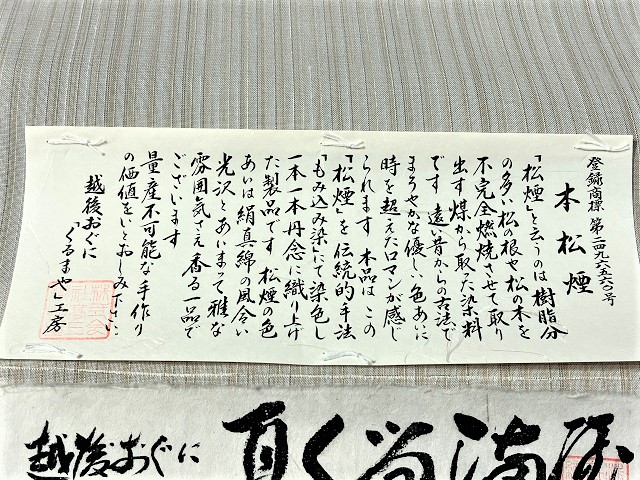 登録商標 第二四九六五六〇号
本松煙
「松煙」と云うのは樹脂分
の多い松の根や松の木を
不完全燃焼させて取り
出す煤から取った染料
です 遠い昔からの古法で
まろやかな優しい色あいに
時を超えたロマンが感じ
られます 本品は この
「松煙」を 伝統的手法
「もみ込み染」にて染色し
一本一本丹念に織り上げ
た製品です 松煙の色
あいは 絹真綿の風合い
光沢とあいまって 雅な
雰囲気さえ香る一品で
ございます
量産不可能な手作り
の価値をいとおしみ下さい
越後おぐに
「くるまや」工房
越後おぐに